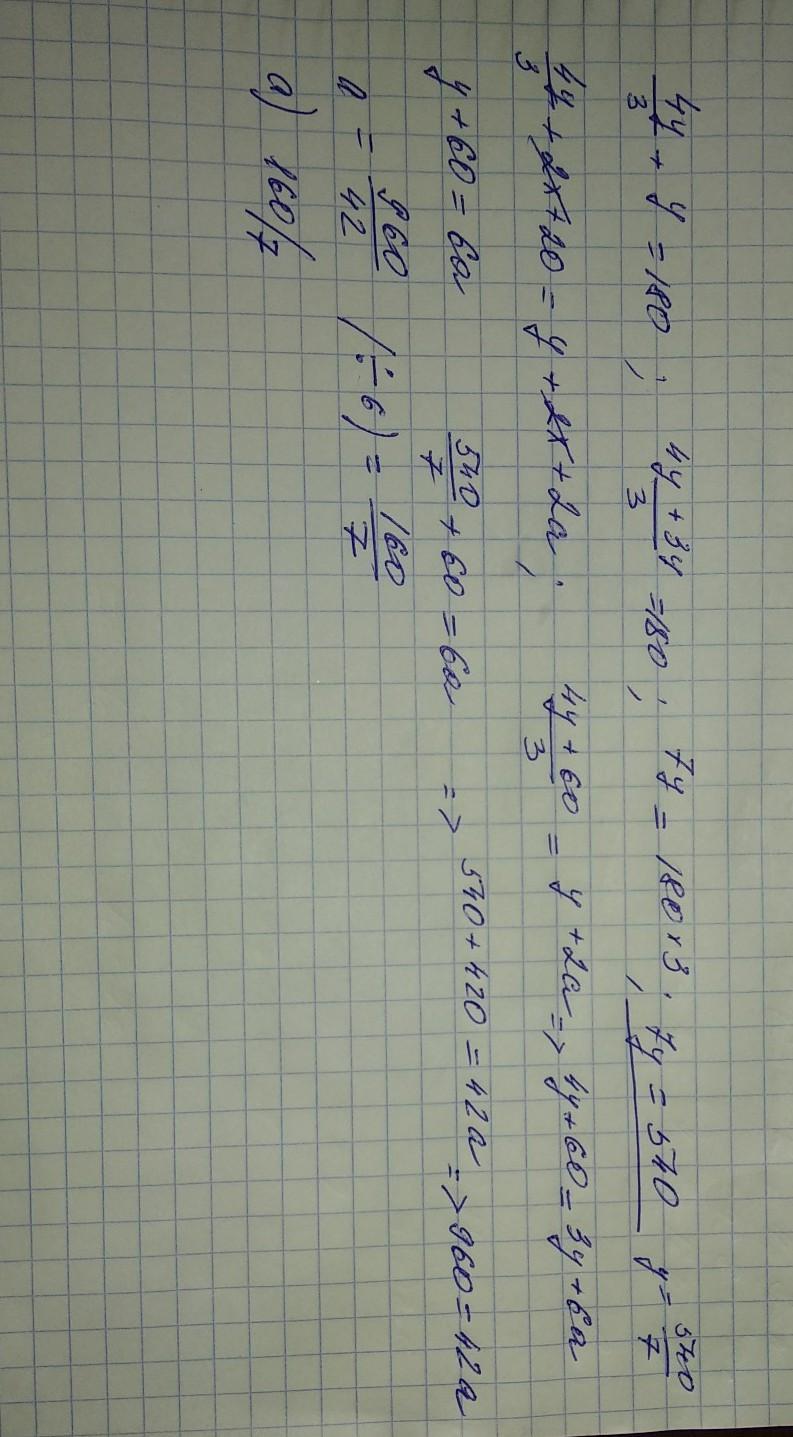 4y/3 + y = 180 ; 4y + 3y/3 = 180 ; 7y = 180 × 3 ; 7y = 540 y = 540/7
4y/3 + 2x + 20 = y + 2x + 2a ; 4y + 60/3 = y + 2a => 4y + 60 = 3y + 6a
y + 60 = 6a 540/7 + 60 = 6a => 540 + 420 = 42a => 960 = 42a
a = 960/42 (÷6) = 160/7
a) 160/7